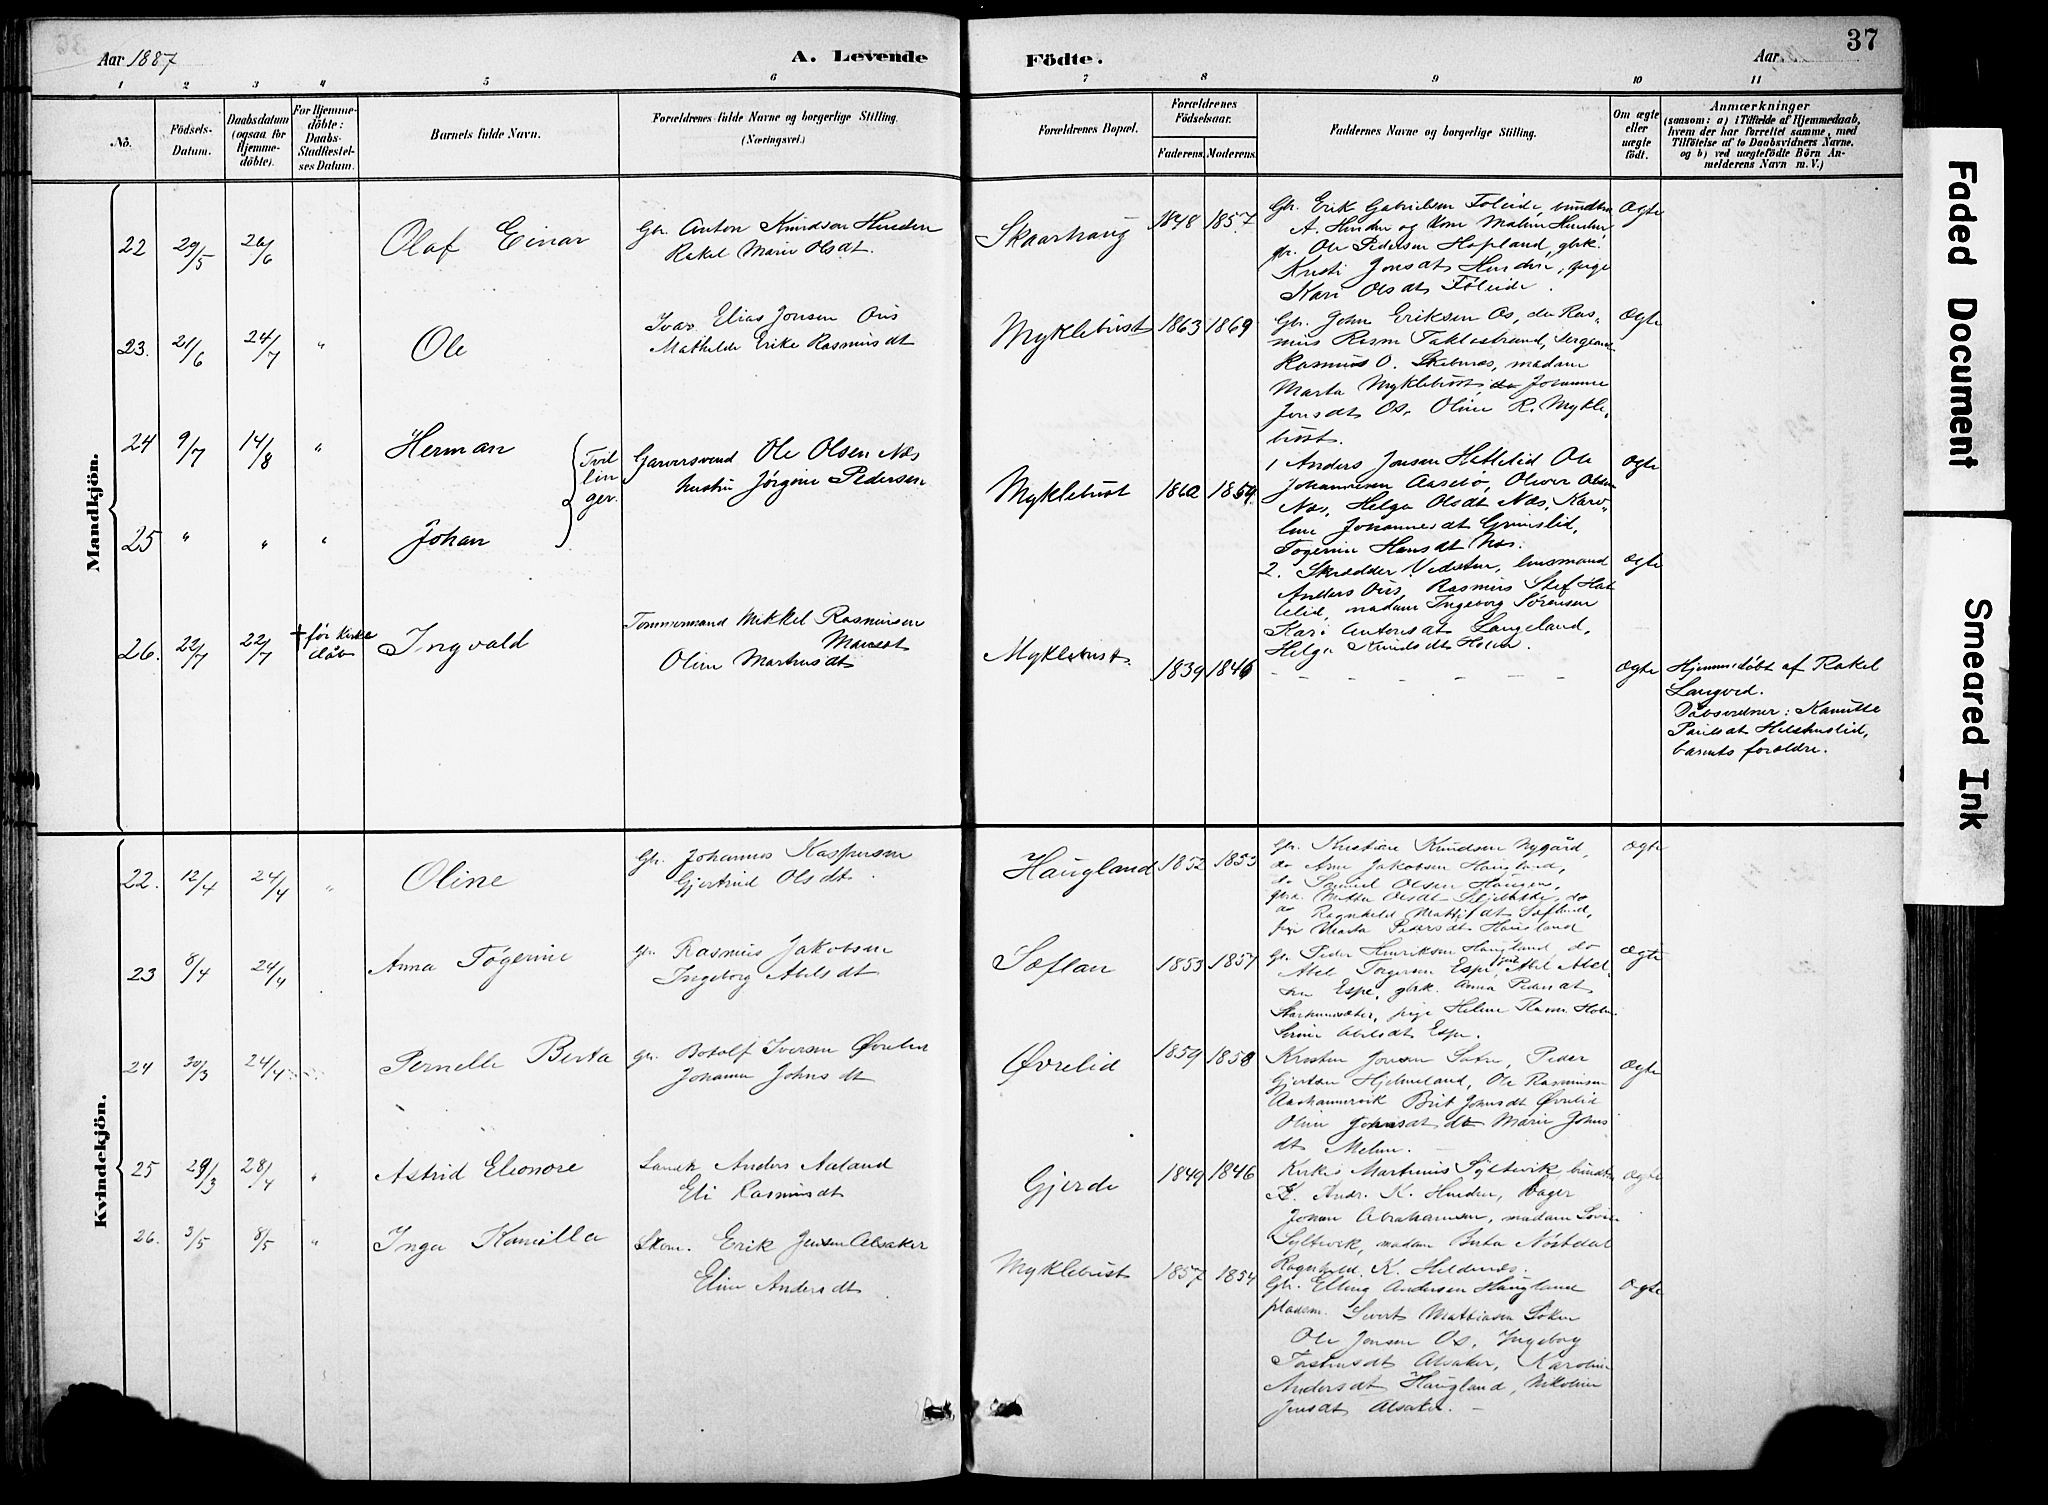 Aar 1887
A. Levende
Födte.
Aar
37
1 2 3 4 5 6 7 8 9 10 11
No.
Födsels-Datum.
Daabsdatum (ogsaa for Hjemmedöbte).
For Hjemmedöbte: Daabs Stadfæstelses Datum.
Barnets fulde Navn.
Forældrenes fulde Navne og borgerlige Stilling. (Næringsvei.)
Forældrenes Bopæl.
Forældrenes Födselsaar.
Faderens. Moderens.
Faddernes Navne og borgerlige Stilling.
Om ægte eller uægte födt.
Anmærkninger
(saasom: a) i Tilfælde af Hjemmedaab,
hvem der har forrettet samme, med
Tilföielse af to Daabsvidners Navne,
og b) ved uægtefödte Börn Anmelderens Navn m. V.)
Mandkjön.
22 29/5 26/6 Olaf Einar
Gbr. Anton Knudson Hunden
Rakel Marie Olsdt.
Skaarhaug 1848 1857
Gbr. Erik Gabrielsen Föleide,
A. og Kone Malin
gbr. Ole Pedersen Hopland, gbrk.
Kristi Jonsdt, pige
Kari Olsdt Föleide.
Ægte
23. 21/6 24/7 " Ole
Elias Jonsen Ous
Mathilde Erike Rasmusdt
Myklebust 1863 1869
Gbr. John Eriksen Os, do Ras-
mus Rasm Taklestrand,
Rasmus O. madam
Marta Myklebust, do Johanne
Jonsdt Os, Oline R. Mykle-
bust.
Ægte
24 9/7 14/8 " Herman
Tvil
lin
ger.
Garversvend Ole Olsen Næs
hustru Jørgine Pedersen
Myklebust 1860 1859.
1 Anders Jonsen Hattelid Ole
Johannesen Aasebø, Oliver Olsen
Næs, Helga Olsdt Næs, Karo-
line Johannesdt Grimslid,
Togerine Hansdt Næs.
Ægte
25 " " " Johan
2. Skrædder husmand
Anders Ous, Rasmus
madam Ingeborg Sörensen
Kari Antonsdt Langeland,
Helga Knudsdt
Ægte
26. 22/7 22/7 † før kirke
dåb
Ingvald
Tømmermand Mikkel Rasmussen
Oline Martinusdt
Myklebust. 1839 1846
— — — — — —
Ægte
Hjemmedöbt af Rakel
Langvid.
Dåbsvidner: Kamille
Paulsdt
barnets forældre.
Kvindekjön.
22. 12/4 24/4 " Oline
Gbr. Johannes Kaspersen
Gjertrud Olsdt.
Haugland 1852 1853
Gbr. Kristian Knudsen Nygård,
do Arne Jakobsen Haugland,
do Samuel Olsen Haugen,
do Ragnhild
Marta Pedersdt Haugland
Ægte
23 8/4 24/4 Anna Tøgerine
Gbr. Rasmus Jakobsen
Ingeborg Abelsdt
Søflan 1853 1857
Gbr. Peder Henriksen Haugland, do
Abel Torgersen Espe, Abel Abel-
sen Espe, gbrk. Anna Pedersdt
pige Helene Rasm.
Abelsdt Espe.
Ægte
24 30/3 24/4 Pernelle Berta
Gbr. Botolf Iversen Øvrelid
Johanna Johnsdt
Øvrelid 1859 1858
Kristen Jonsen Peder
Gjertsen Hjelmeland, Ole Rasmussen
Brit Johnsdt Øvrelid
Oline Johnsdt do Marie Johns
dt
Ægte
25 29/3 28/4 " Astrid Eleonore
Anders Aaland
Eli Rasmusdt
Gjerde 1849 1846
Martinus Syltevik,
Andr. K. Bager
Johan Abrahamsen, madam
Syltevik, madam Berta Nøstdal
Ragnhild K.
Ægte
26. 3/5 8/5 " Inga Kamilla
Skom. Erik Jensen Alsaker
Eline Andersdt.
Myklebust 1857 1854
Gbr. Elling Andersen Haugland
pladsm. Sivert Mathiasen
Ole Jensen Os, Ingeborg
Alsaker, Karoline
Andersdt Haugland, Nikoline
Jensdt Alsaker. —
Ægte
Faded Document
Smeared Ink